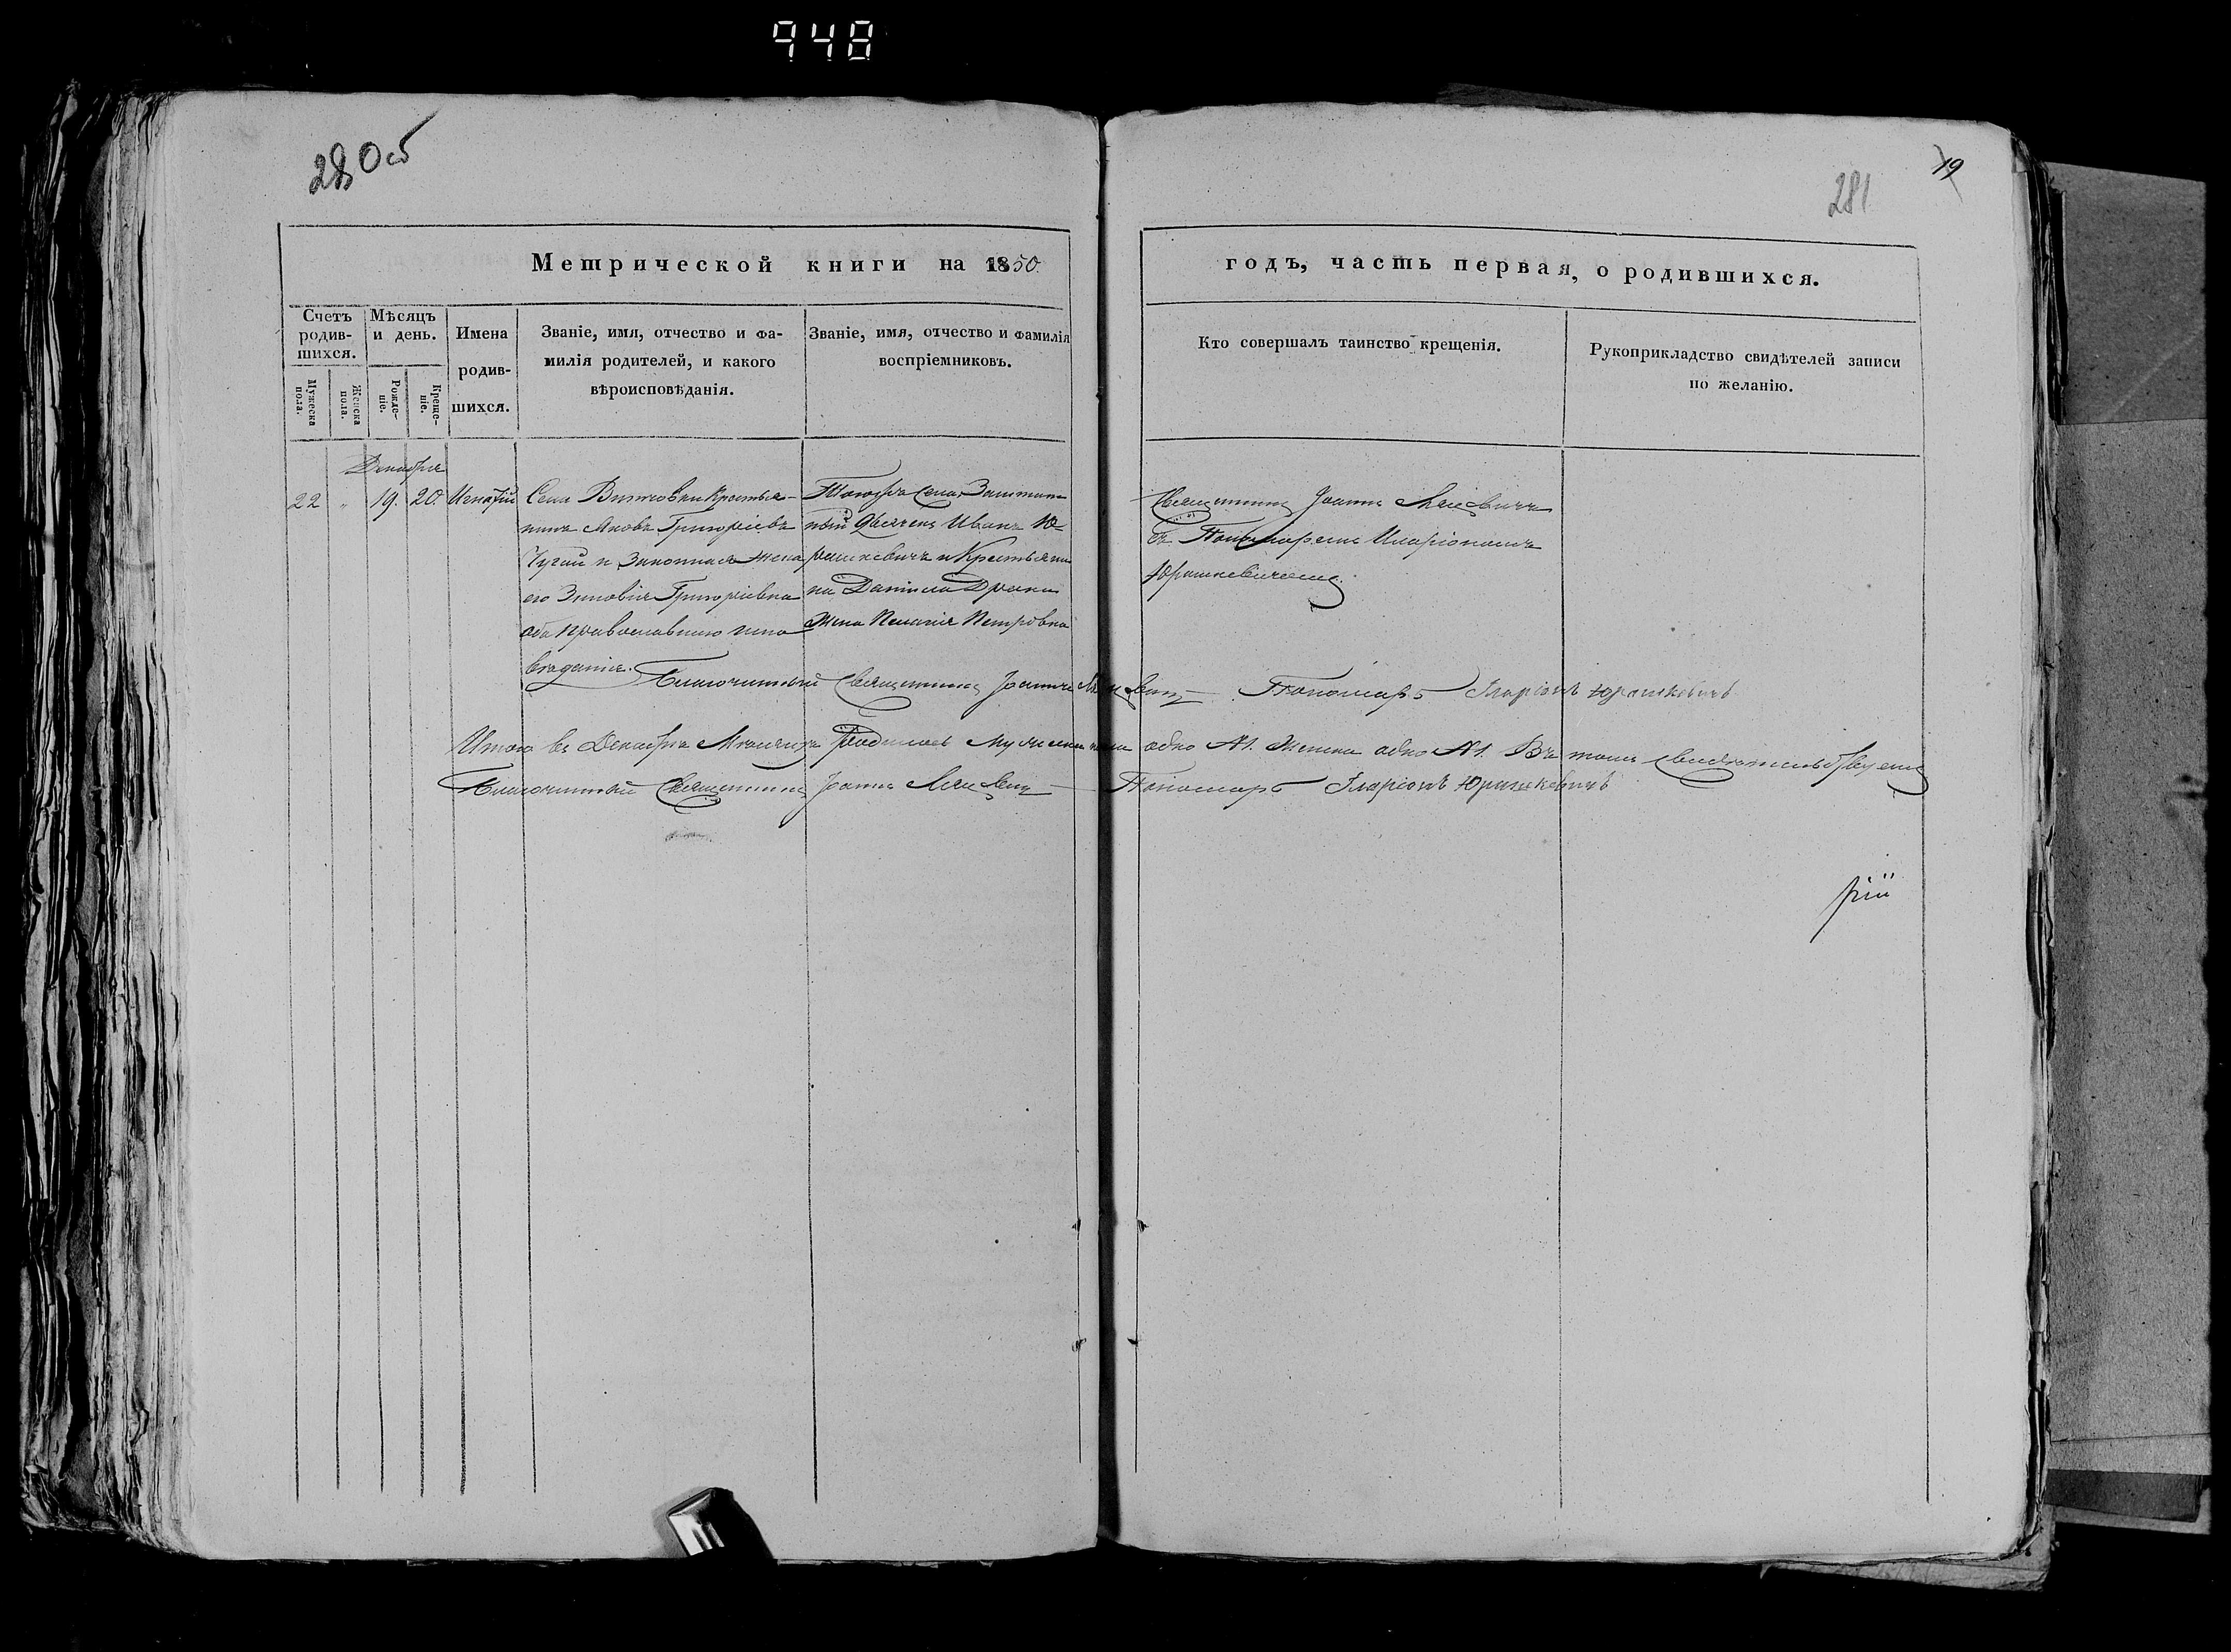 948
280 об
19
281
Метрической книги на 1850.
годъ, часть первая, о родившихся.
Счетъ родив-шихся.
Мѣсяцъ и день.
Имена родив-шихся.
Званіе, имя, отчество и фа-
милія родителей, и какого
вѣроисповѣданія.
Званіе, имя, отчество и фамилія
воспріемниковъ.
Кто совершалъ таинство крещенія.
Рукоприкладство свидѣтелей записи
по желанію.
Мужеска пола.
Женска пола.
Рожде-ніе.
Креще-ніе.
Декабря
22 " 19. 20. Игнатій
Села Крестья-
нинъ Яковъ Григоріевъ
Чугай и Законная жена
его Зиновія Григоріевна
оба православнаго испо
вѣданія.
Тогожъ Села Заштат-
ный Иванъ Ю-
рашкевичъ и Крестьяни
на Даніила
жена Пелагія Петровна
Священникъ Іоаннъ
съ Пономаремъ Иларіономъ
Юрашкевичемъ.
Благочинный Священникъ Іоаннъ Пономарь Іларіонъ Юрашкевичъ
Итого въ Декабрѣ Мѣсяцѣ родилось мужеска пола одно №1. Женска одно №1. Въ томъ свидѣтельствуемъ
Благочинный Священникъ Іоаннъ Пономарь Іларіонъ Юрашкевичъ
рій